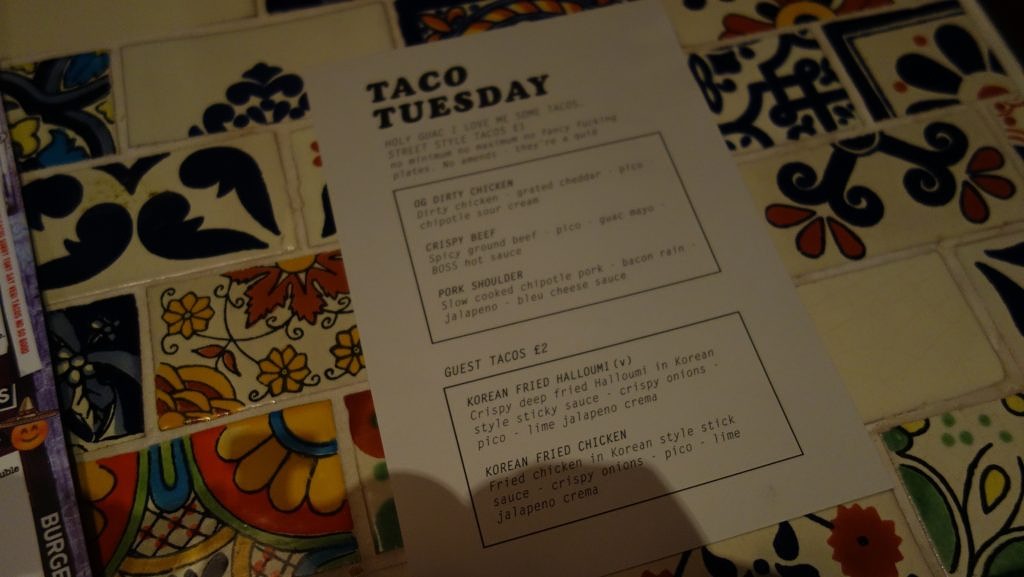 TACO
TUESDAY
HOLY GUAC I LOVE ME SOME TACOS.
STREET STYLE TACOS £1
no minimum no maximum no fancy fucking
plates. No amends - they're a quid
OG DIRTY CHICKEN
Dirty chicken - grated cheddar - pico -
chipotle sour cream
CRISPY BEEF
Spicy ground beef - pico - guac mayo -
BOSS hot sauce
PORK SHOULDER
Slow cooked chipotle pork - bacon rain -
jalapeno - bleu cheese sauce
GUEST TACOS £2
KOREAN FRIED HALLOUMI(v)
Crispy deep fried Halloumi in Korean
style sticky sauce - crispy onions -
pico - lime jalapeno crema
KOREAN FRIED CHICKEN
Fried chicken in Korean style stick
sauce - crispy onions - pico - lime
jalapeno crema
BURGE